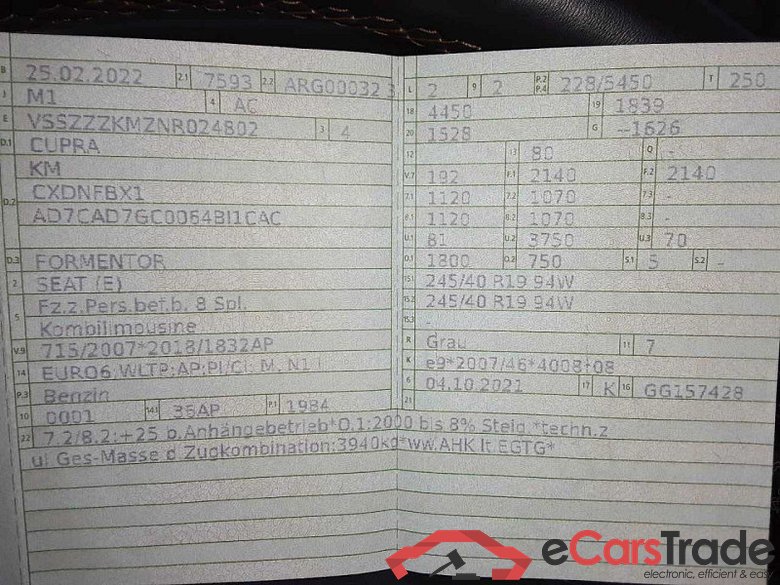 B 25.02.2022 2.1 7593 2.2 ARG00032 3
J M1 4 AC
E VSSZZZKMZNR024802 3 4
D.1 CUPRA
KM
D.2 CXDNFBX1
AD7CAD7GC0064BI1CAC
D.3 FORMENTOR
2 SEAT (E)
5 Fz.z.Pers.bef.b. 8 Spl.
Kombilimousine
V.9 715/2007*2018/1832AP
14 EURO6;WLTP;AP;PI/CI; M, N1 I
P.3 Benzin
10 0001 14.1 36AP P.1 1984
L 2 9 2 P.2 P.4 228/5450 T 250
18 4450 19 1839
20 1528 G --1626
12 13 80 Q -
V.7 192 F.1 2140 F.2 2140
7.1 1120 7.2 1070 7.3 -
8.1 1120 8.2 1070 8.3 -
U.1 81 U.2 3750 U.3 70
O.1 1800 O.2 750 S.1 5 S.2 -
15.1 245/40 R19 94W
15.2 245/40 R19 94W
15.3 -
R Grau 11 7
K e9*2007/46*4008*08
6 04.10.2021 17 K 16 GG157428
21
22 7.2/8.2:+25 b.Anhängebetrieb*O.1:2000 bis 8% Steig.*techn.z
ul Ges-Masse d Zugkombination:3940kg*ww.AHK lt.EGTG*
eCarsTrade
electronic, efficient & eas